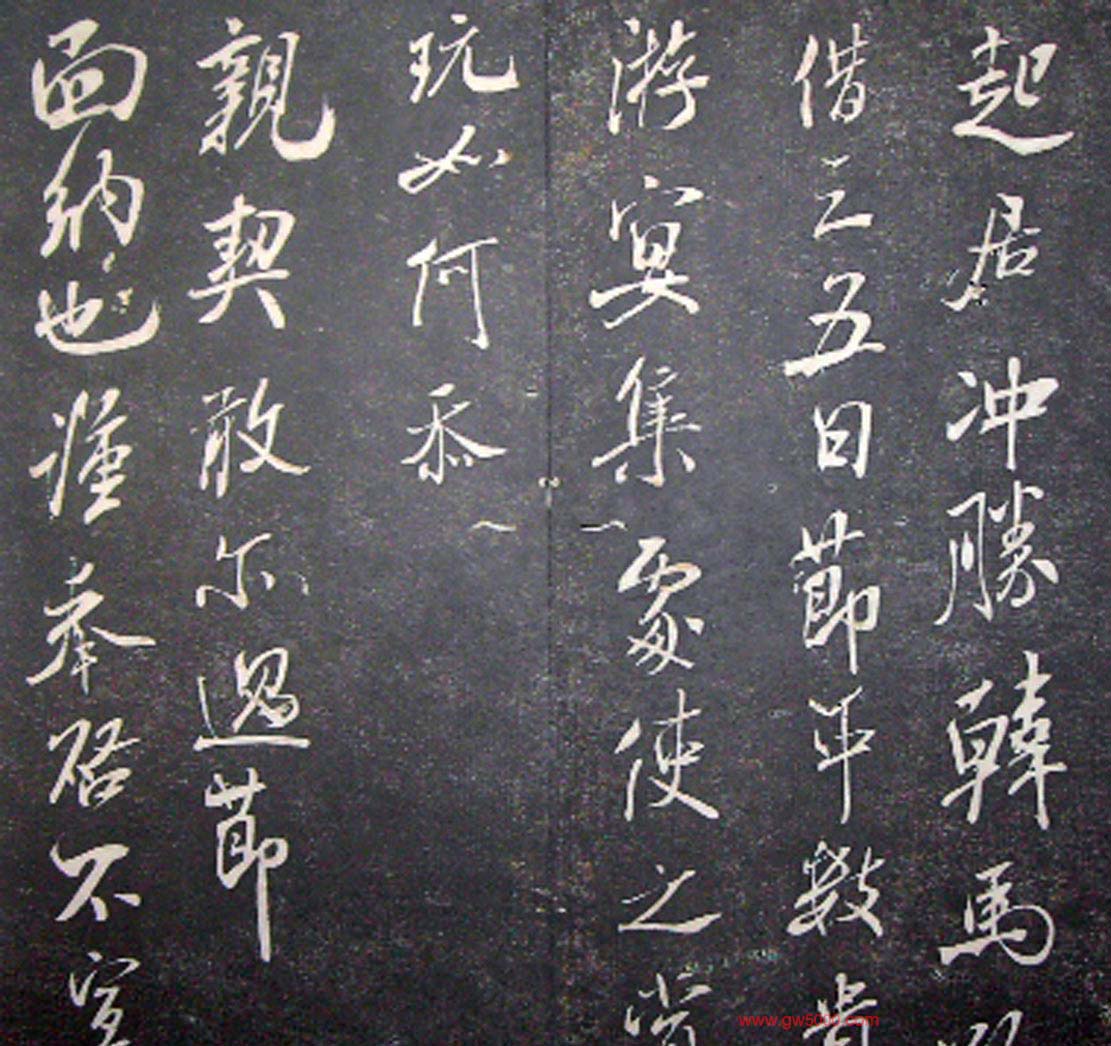 起居冲勝韓馬
借三五日節中數
游宴集一處使之賞
玩如何忝
親契敢尔過節
面納也謹奉啓不宣
www.gw5000.com